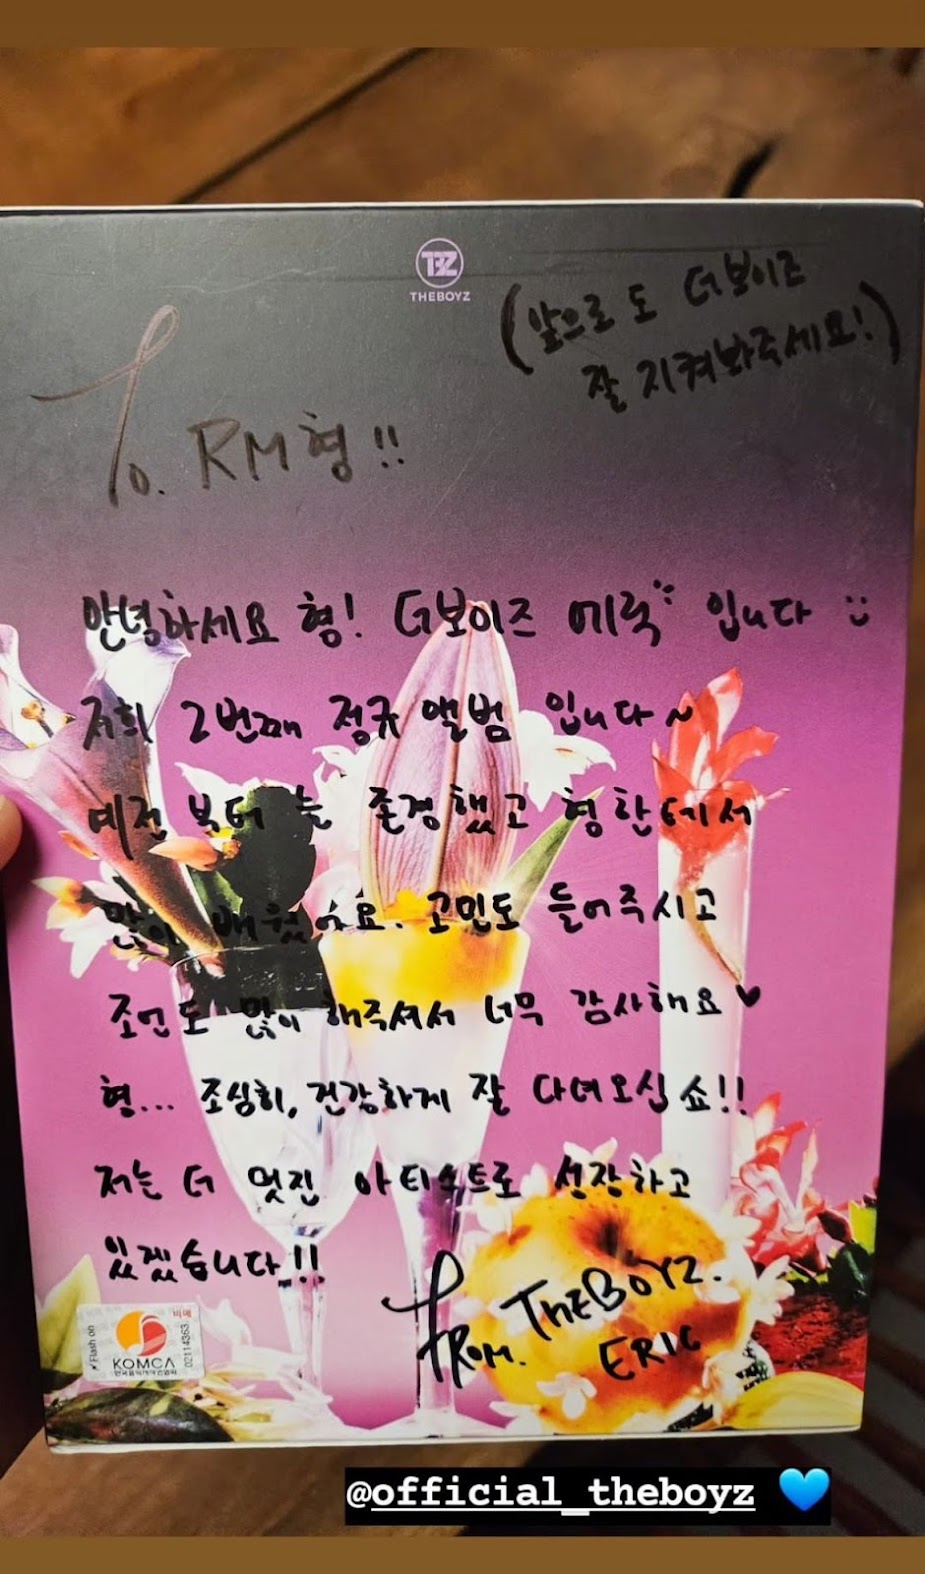 TBZ
THEBOYZ
(앞으로도 더보이즈
잘 지켜봐주세요!)
To. RM형!!
안녕하세요 형! 더보이즈 에릭 입니다 :)
저희 2번째 정규 앨범 입니다~
예전부터 늘 존경했고 형한테서
많이 배웠어요. 고민도 들어주시고
조언도 많이 해주셔서 너무 감사해요♥
형... 조심히, 건강하게 잘 다녀오십쇼!!
저는 더 멋진 아티스트로 성장하고
있겠습니다!!
FROM. THEBOYZ.
ERIC
Flash on
비매
KOMCA
한국음악저작권협회
02114363
@official_theboyz 💙